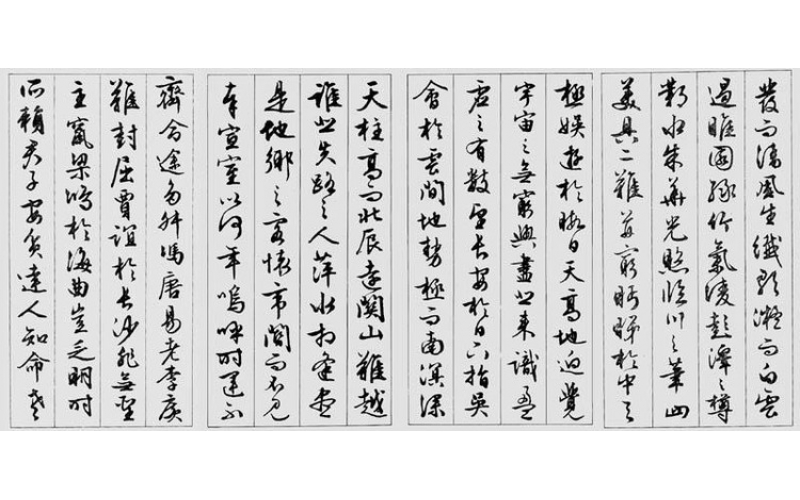 發而清風生纖歌凝而白雲
遏睢園綠竹氣凌彭澤之樽
鄴水朱華光照臨川之筆四
美具二難並窮眄睇於中天
極娛遊於暇日天高地迥覺
宇宙之無窮興盡悲來識盈
虛之有數望長安於日下指吳
會於雲間地勢極而南溟深
天柱高而北辰遠關山難越
誰悲失路之人萍水相逢盡
是他鄉之客懷帝閽而不見
奉宣室以何年嗚呼時運不
齊命途多舛馮唐易老李廣
難封屈賈誼於長沙非無聖
主竄梁鴻於海曲豈乏明時
所賴君子安貧達人知命老